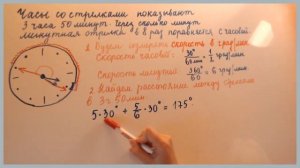 Часы со стрелками показывают
3 часа 50 минут. Через сколько минут
минутная стрелка в 8 раз поравняется с часовой.
1. Будем измерять скорость в град/мин.
Скорость часовой: 30°/60 мин = 1/2 град/мин.
Скорость минутной 360°/60 = 6 град/мин.
2. Найдем расстояние между стрелками
в 3ч 50мин.
5·30° + 5/6·30° = 175°